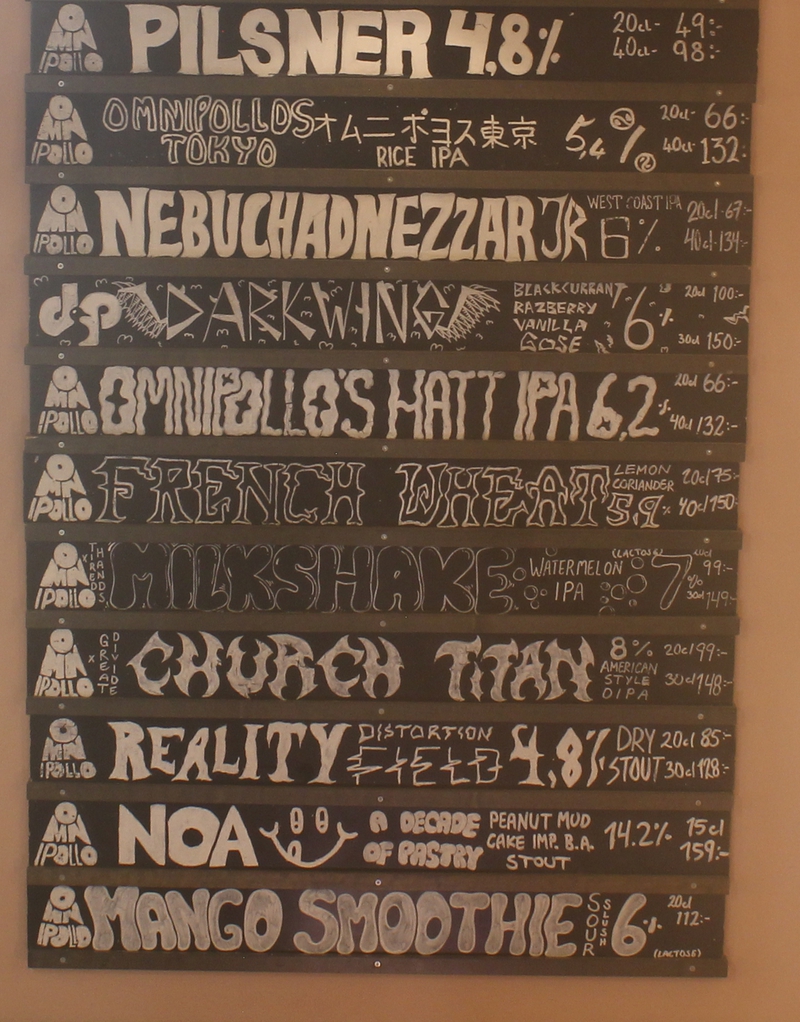 OMNIPOLLO PILSNER 4,8% 20cl- 49:-
40cl- 98:-
OMNIPOLLO OMNIPOLLOS TOKYO オムニポヨス東京 RICE IPA 5,4% 20cl- 66:-
40cl- 132:-
OMNIPOLLO NEBUCHADNEZZAR JR WEST COAST IPA 6% 20cl-67:-
40cl-134:-
dp DARKWING BLACKCURRANT RAZBERRY VANILLA GOSE 6% 20cl 100:-
30cl 150:-
OMNIPOLLO OMNIPOLLO'S HATT IPA 6,2% 20cl 66:-
40cl 132:-
OMNIPOLLO FRENCH WHEAT LEMON CORIANDER 5,9% 20cl 75:-
40cl 150:-
OMNIPOLLO x 3 HANDS MILKSHAKE WATERMELON IPA (LACTOSE) 7% 20cl 99:-
30cl 149:-
OMNIPOLLO x GREAT DIVIDE CHURCH TITAN 8% AMERICAN STYLE DIPA 20cl 99:-
30cl 148:-
OMNIPOLLO REALITY DISTORTION FIELD 4,8% DRY STOUT 20cl 85:-
30cl 128:-
OMNIPOLLO NOA A DECADE OF PASTRY PEANUT MUD CAKE IMP. B.A. STOUT 14.2% 15cl
159:-
OMNIPOLLO MANGO SMOOTHIE SOUR SLUSH 6% (LACTOSE) 20cl
112:-